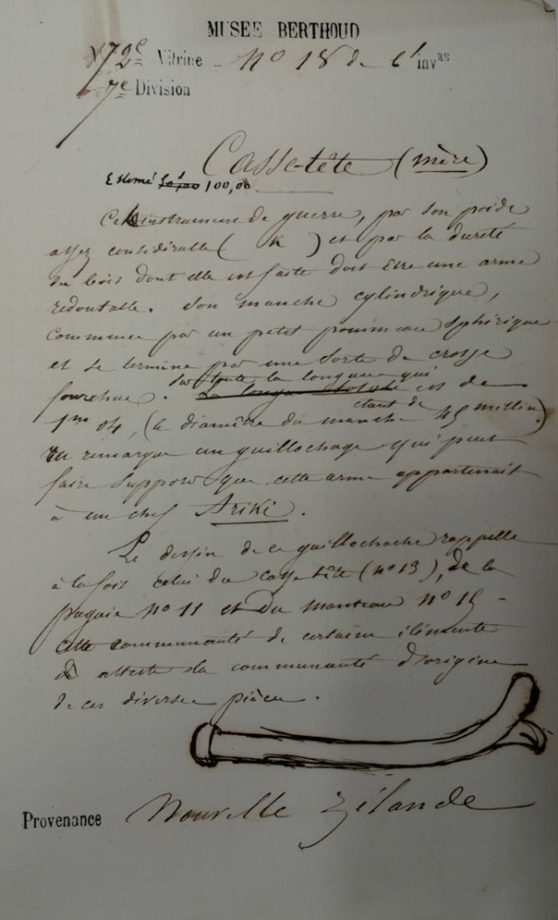 MUSEE BERTHOUD
72e Vitrine - No 18 de l'invre
7e Division
Casse-tête (mère)
Estimé 100,00
Cet instrument de guerre, par son poids
assez considérable ( K ) et par la dureté
du bois dont elle est faite doit être une arme
redoutable. Son manche cylindrique,
commence par un petit pommeau sphérique
et se termine par une sorte de crosse
fourchue. sur toute la longueur qui est de
1m 04, (le diamètre du manche étant de 45 millim.)
on remarque un guillochage qui peut
faire supposer que cette arme appartenait
à un chef Ariki.
Le dessin de ce guillochache rappelle
à la fois celui du casse tête (no 13), de la
pagaie No 11 et du manteau No 15 -
cette communauté de certains éléments
atteste la communauté d'origine
de ces diverses pièces.
Provenance Nouvelle Zélande